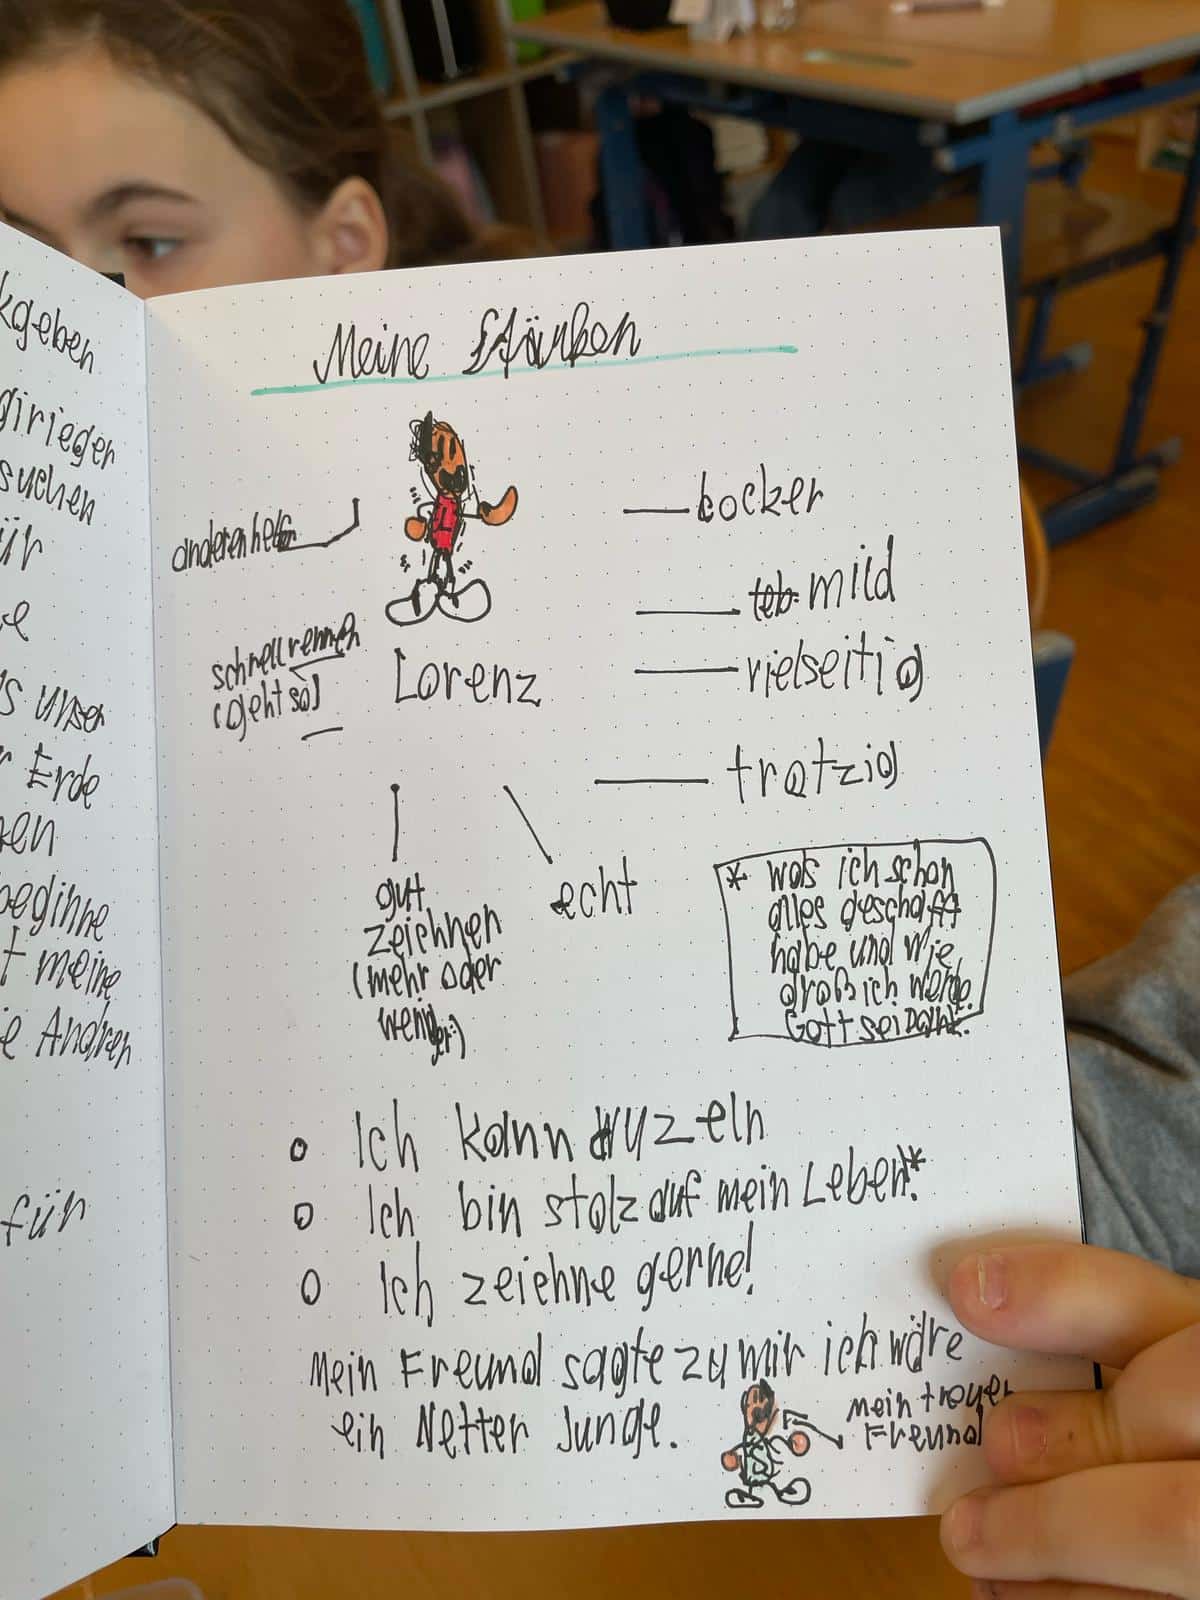 kgeben
girieger
suchen
ür
e
s unser
r Erde
en
beginne
t meine
e Andren
für
Meine Stärken
anderen helfen
schnell rennen
(geht so)
Lorenz
L
locker
mild
vielseitig
trotzig
echt
gut
zeichnen
(mehr oder
weniger)
* was ich schon
alles geschafft
habe und wie
groß ich werde.
Gott sei Dank.
o Ich kann wuzeln
o Ich bin stolz auf mein Leben!*
o Ich zeichne gerne!
Mein Freund sagte zu mir ich wäre
ein Netter Junge.
mein treuer
Freund